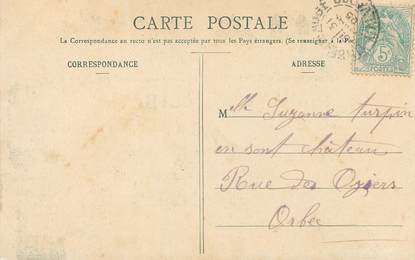 CARTE POSTALE
La Correspondance au recto n'est pas acceptée par tous les Pays étrangers. (Se renseigner à la
CORRESPONDANCE
ADRESSE
Mlle Suzanne turpin
en sont château
Rue des Oziers
Orbec
5c
POSTES